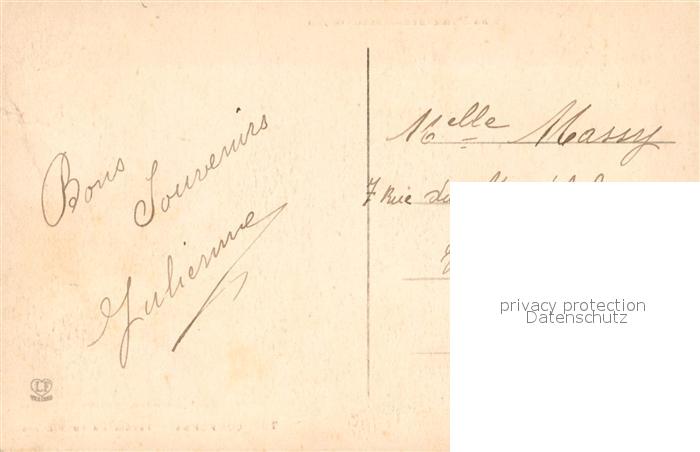 Bons
Souvenirs
Julienne
Melle Massy
7 Rue du
privacy protection
Datenschutz
LF